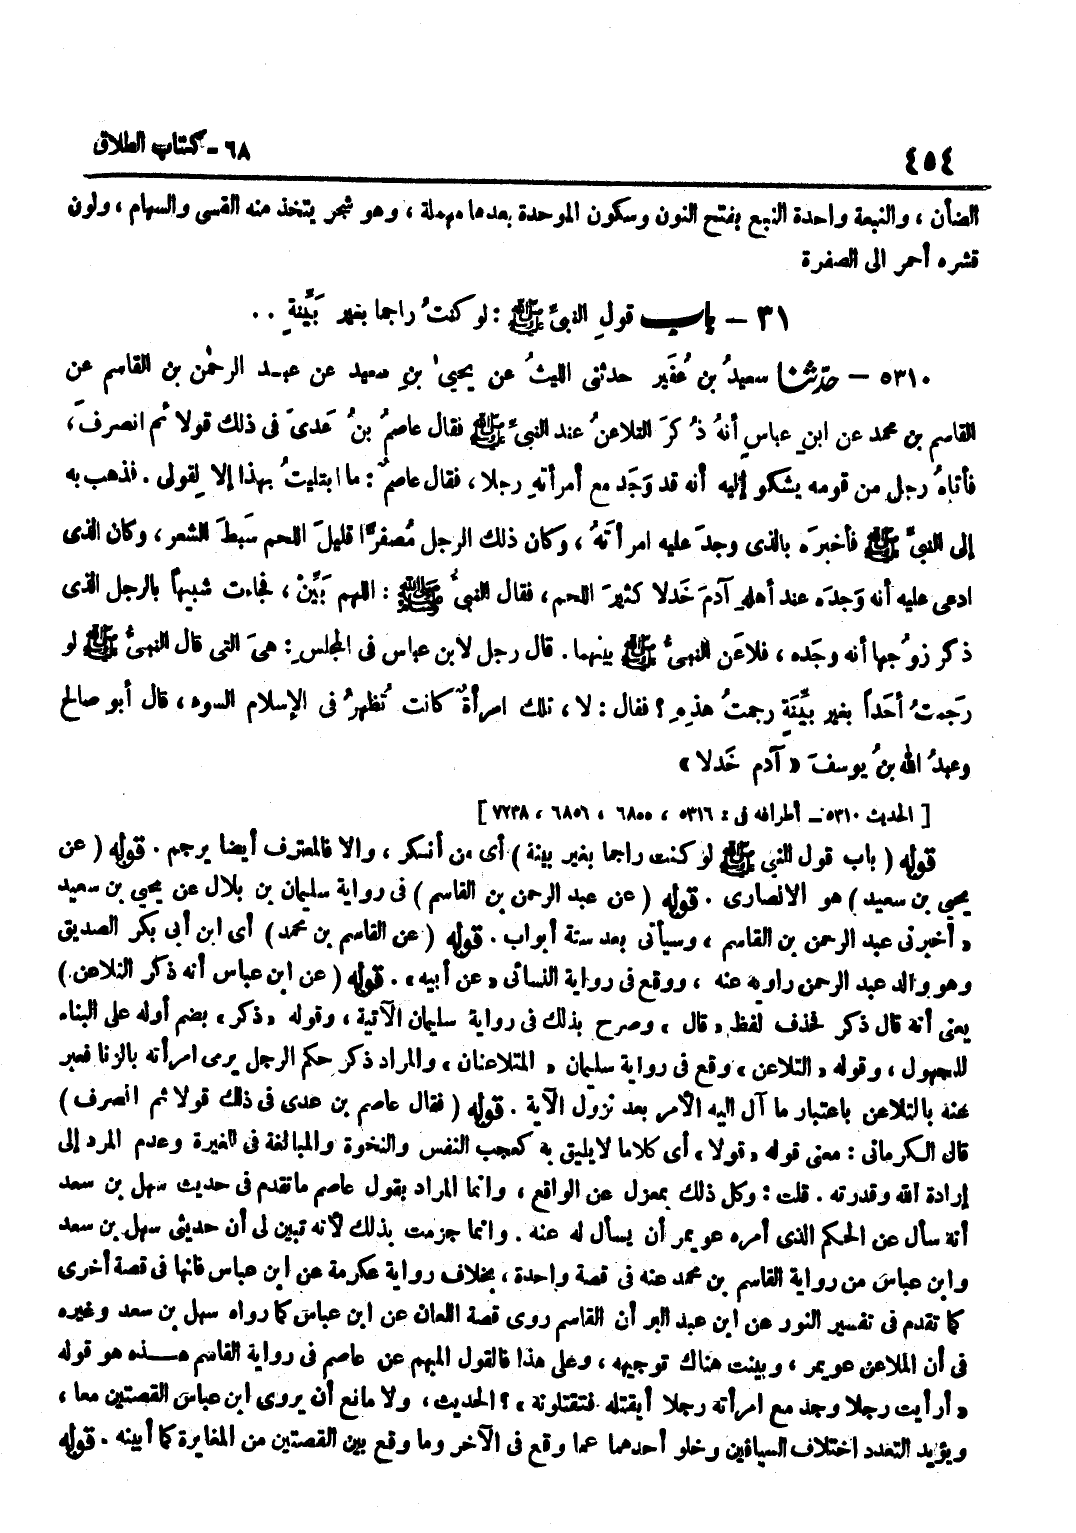 ٤٥٤
٦٨ - كتاب الطلاق
الضأن ، والنبعة واحدة النبع بفتح النون وسكون الموحدة بعدها مهملة ، وهو شجر يتخذ منه القسى والسهام ، ولون
قشره أحمر الى الصفرة
٣١ - باب قولِ النبيِّ ﷺ : لو كنتُ راجما بغير بَيِّنةٍ . .
٥٣١٠ - حدّثنا سعيدُ بن عُفَير حدثنى الليثُ عن يحيىٰ بنِ سعيد عن عبد الرحمٰن بن القاسم عن
القاسم بن محمد عن ابنِ عباسٍ أنهُ ذُكرَ التلاعنُ عند النبيِّ ﷺ فقال عاصمُ بنُ عَدىّ فى ذلك قولا ثم انصرفَ ،
فأتاهُ رجل من قومه يشكو إليه أنه قد وَجَد مع أمرأتهِ رجلا ، فقال عاصمٌ : ما ابتليتُ بهذا إلا لِقولى . فذهب به
إلى النبيِّ ﷺ فأخبرَه بالذى وجدَ عليه امرأتَهُ ، وكان ذلك الرجل مُصفرًّا قليلَ اللحم سَبطَ الشعر ، وكان الذى
ادعى عليه أنه وَجدَه عند أهلهِ آدمَ خَدلا كثيرَ اللحم ، فقال النبيُّ ﷺ : اللهم بَيِّنْ ، فجاءت شبيهاً بالرجل الذى
ذكر زوجُها أنه وجَده ، فلاعَن النبيُّ ﷺ بينهما . قال رجل لابن عباس فى المجلسِ : هىَ التى قال النبيُّ ﷺ لو
رَجمتُ أحَداً بغير بيِّنَةٍ رجمتُ هذهِ ؟ فقال : لا ، تلك امرأةٌ كانت تُظهرُ فى الإسلام السوء ، قال أبو صالح
وعبدُ الله بنُ يوسفَ « آدم خَدلا »
[ الحديث ٥٣١٠ - أطرافه فى : ٥٣١٦ ، ٦٨٥٥ ، ٦٨٥٦ ، ٧٢٣٨ ]
قوله ( باب قول النبي ﷺ لو كنت راجما بغير بينة ) أى من أنكر ، والا فالمعترف أيضا يرجم . قوله ( عن
يحيي بن سعيد ) هو الانصارى . قوله ( عن عبد الرحمن بن القاسم ) فى رواية سليمان بن بلال عن يحيي بن سعيد
« أخبرنى عبد الرحمن بن القاسم ، وسيأتى بعد ستة أبواب . قوله ( عن القاسم بن محمد ) أى ابن أبى بكر الصديق
وهو والد عبد الرحمن راويه عنه ، ووقع فى رواية النسائى « عن أبيه » . قوله ( عن ابن عباس أنه ذكر التلاعن )
يعنى أنه قال ذكر فحذف لفظ « قال » وصرح بذلك فى رواية سليمان الآتية ، وقوله « ذكر » بضم أوله على البناء
للمجهول ، وقوله « التلاعن » وقع فى رواية سليمان « المتلاعنان » والمراد ذكر حكم الرجل يرمى امرأته بالزنا فعبر
عنه بالتلاعن باعتبار ما آل اليه الأمر بعد نزول الآية . قوله ( فقال عاصم بن عدى فى ذلك قولا ثم انصرف )
قال الكرمانى : معنى قوله « قولا » أى كلاما لا يليق به كعجب النفس والنخوة والمبالغة فى الغيرة وعدم المرد إلى
إرادة الله وقدرته . قلت : وكل ذلك بمعزل عن الواقع ، وانما المراد بقول عاصم ما تقدم فى حديث سهل بن سعد
أنه سأل عن الحكم الذى أمره عويمر أن يسأل له عنه . وانما جزمت بذلك لأنه تبين لى أن حديثى سهل بن سعد
وابن عباس من رواية القاسم بن محمد عنه فى قصة واحدة ، بخلاف رواية عكرمة عن ابن عباس فانها فى قصة أخرى
كما تقدم فى تفسير النور عن ابن عبد البر أن القاسم روى قصة اللعان عن ابن عباس كما رواه سهل بن سعد وغيره
فى أن الملاعن عويمر ، وبينت هناك توجيهه ، وعلى هذا فالقول المبهم عن عاصم فى رواية القاسم هذه هو قوله
« أرأيت رجلا وجد مع امرأته رجلا أيقتله فتقتلونه » ؟ الحديث ، ولا مانع أن يروى ابن عباس القصتين معا ،
ويؤيد التعدد اختلاف السياقين وخلو أحدهما عما وقع فى الآخر وما وقع بين القصتين من المغايرة كما أبينه . قوله